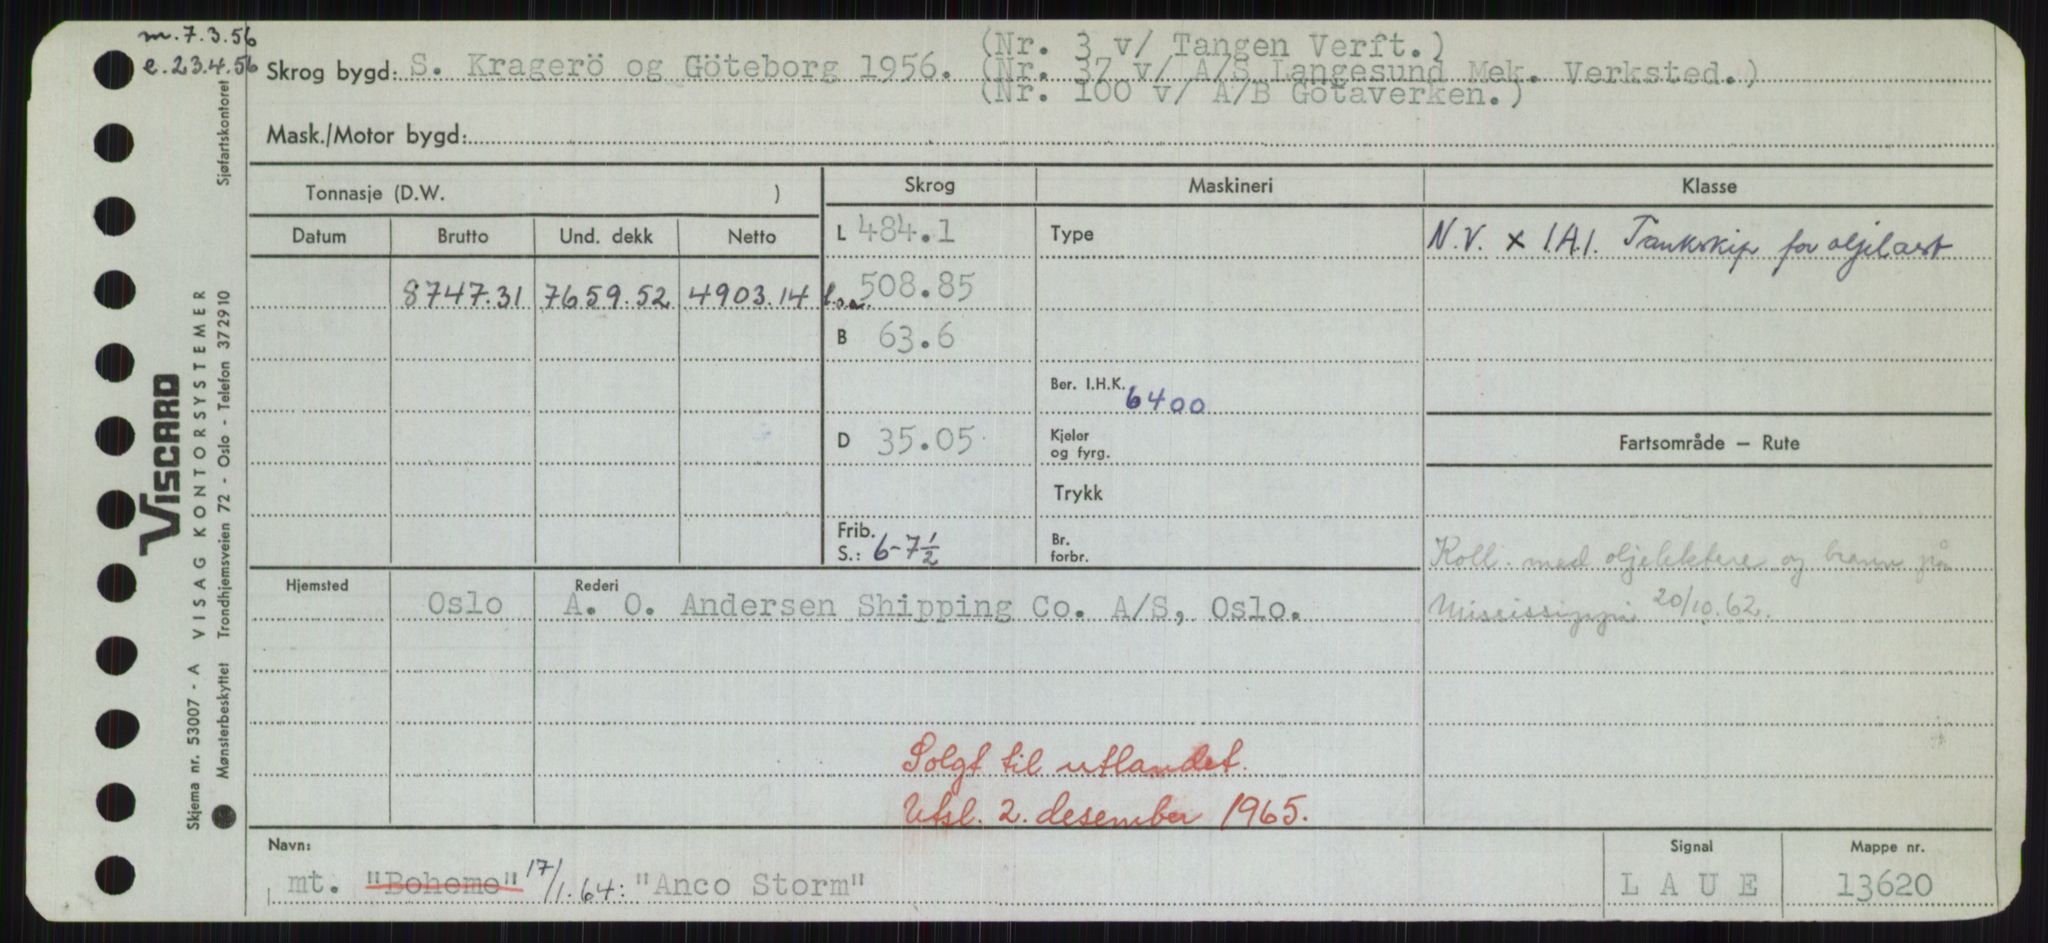 m. 7.3.56
e. 23.4.56
Skrog bygd: S. Kragerö og Göteborg 1956. (Nr. 3 v/ Tangen Verft.)
(Nr. 37 v/ A/S Langesund Mek. Verksted.)
(Nr. 100 v/ A/B Götaverken.)
Mask./Motor bygd:
Tonnasje (D.W. )
Skrog
Maskineri
Klasse
Datum Brutto Und. dekk Netto
L 484.1
Type
N.V. x 1.A.1. Tankskip for oljelast
8747.31 7659.52 4903.14
l.o.a. 508.85
B 63.6
Ber. I.H.K. 6400
D 35.05
Kjeler
og fyrg.
Fartsområde — Rute
Trykk
Frib.
S.: 6-7½
Br.
forbr.
Koll. med oljelektere og brann på
Mississippi 20/10.62.
Hjemsted
Rederi
Oslo A. O. Andersen Shipping Co. A/S, Oslo.
Solgt til utlandet.
Utsl. 2. desember 1965.
Navn:
mt. "Boheme" 17/1.64: "Anco Storm"
Signal
L A U E
Mappe nr.
13620
VISCARD
Skjema nr. 53007 - A VISAG KONTORSYSTEMER
Mønsterbeskyttet Trondhjemsveien 72 - Oslo - Telefon 372910
Sjøfartskontoret